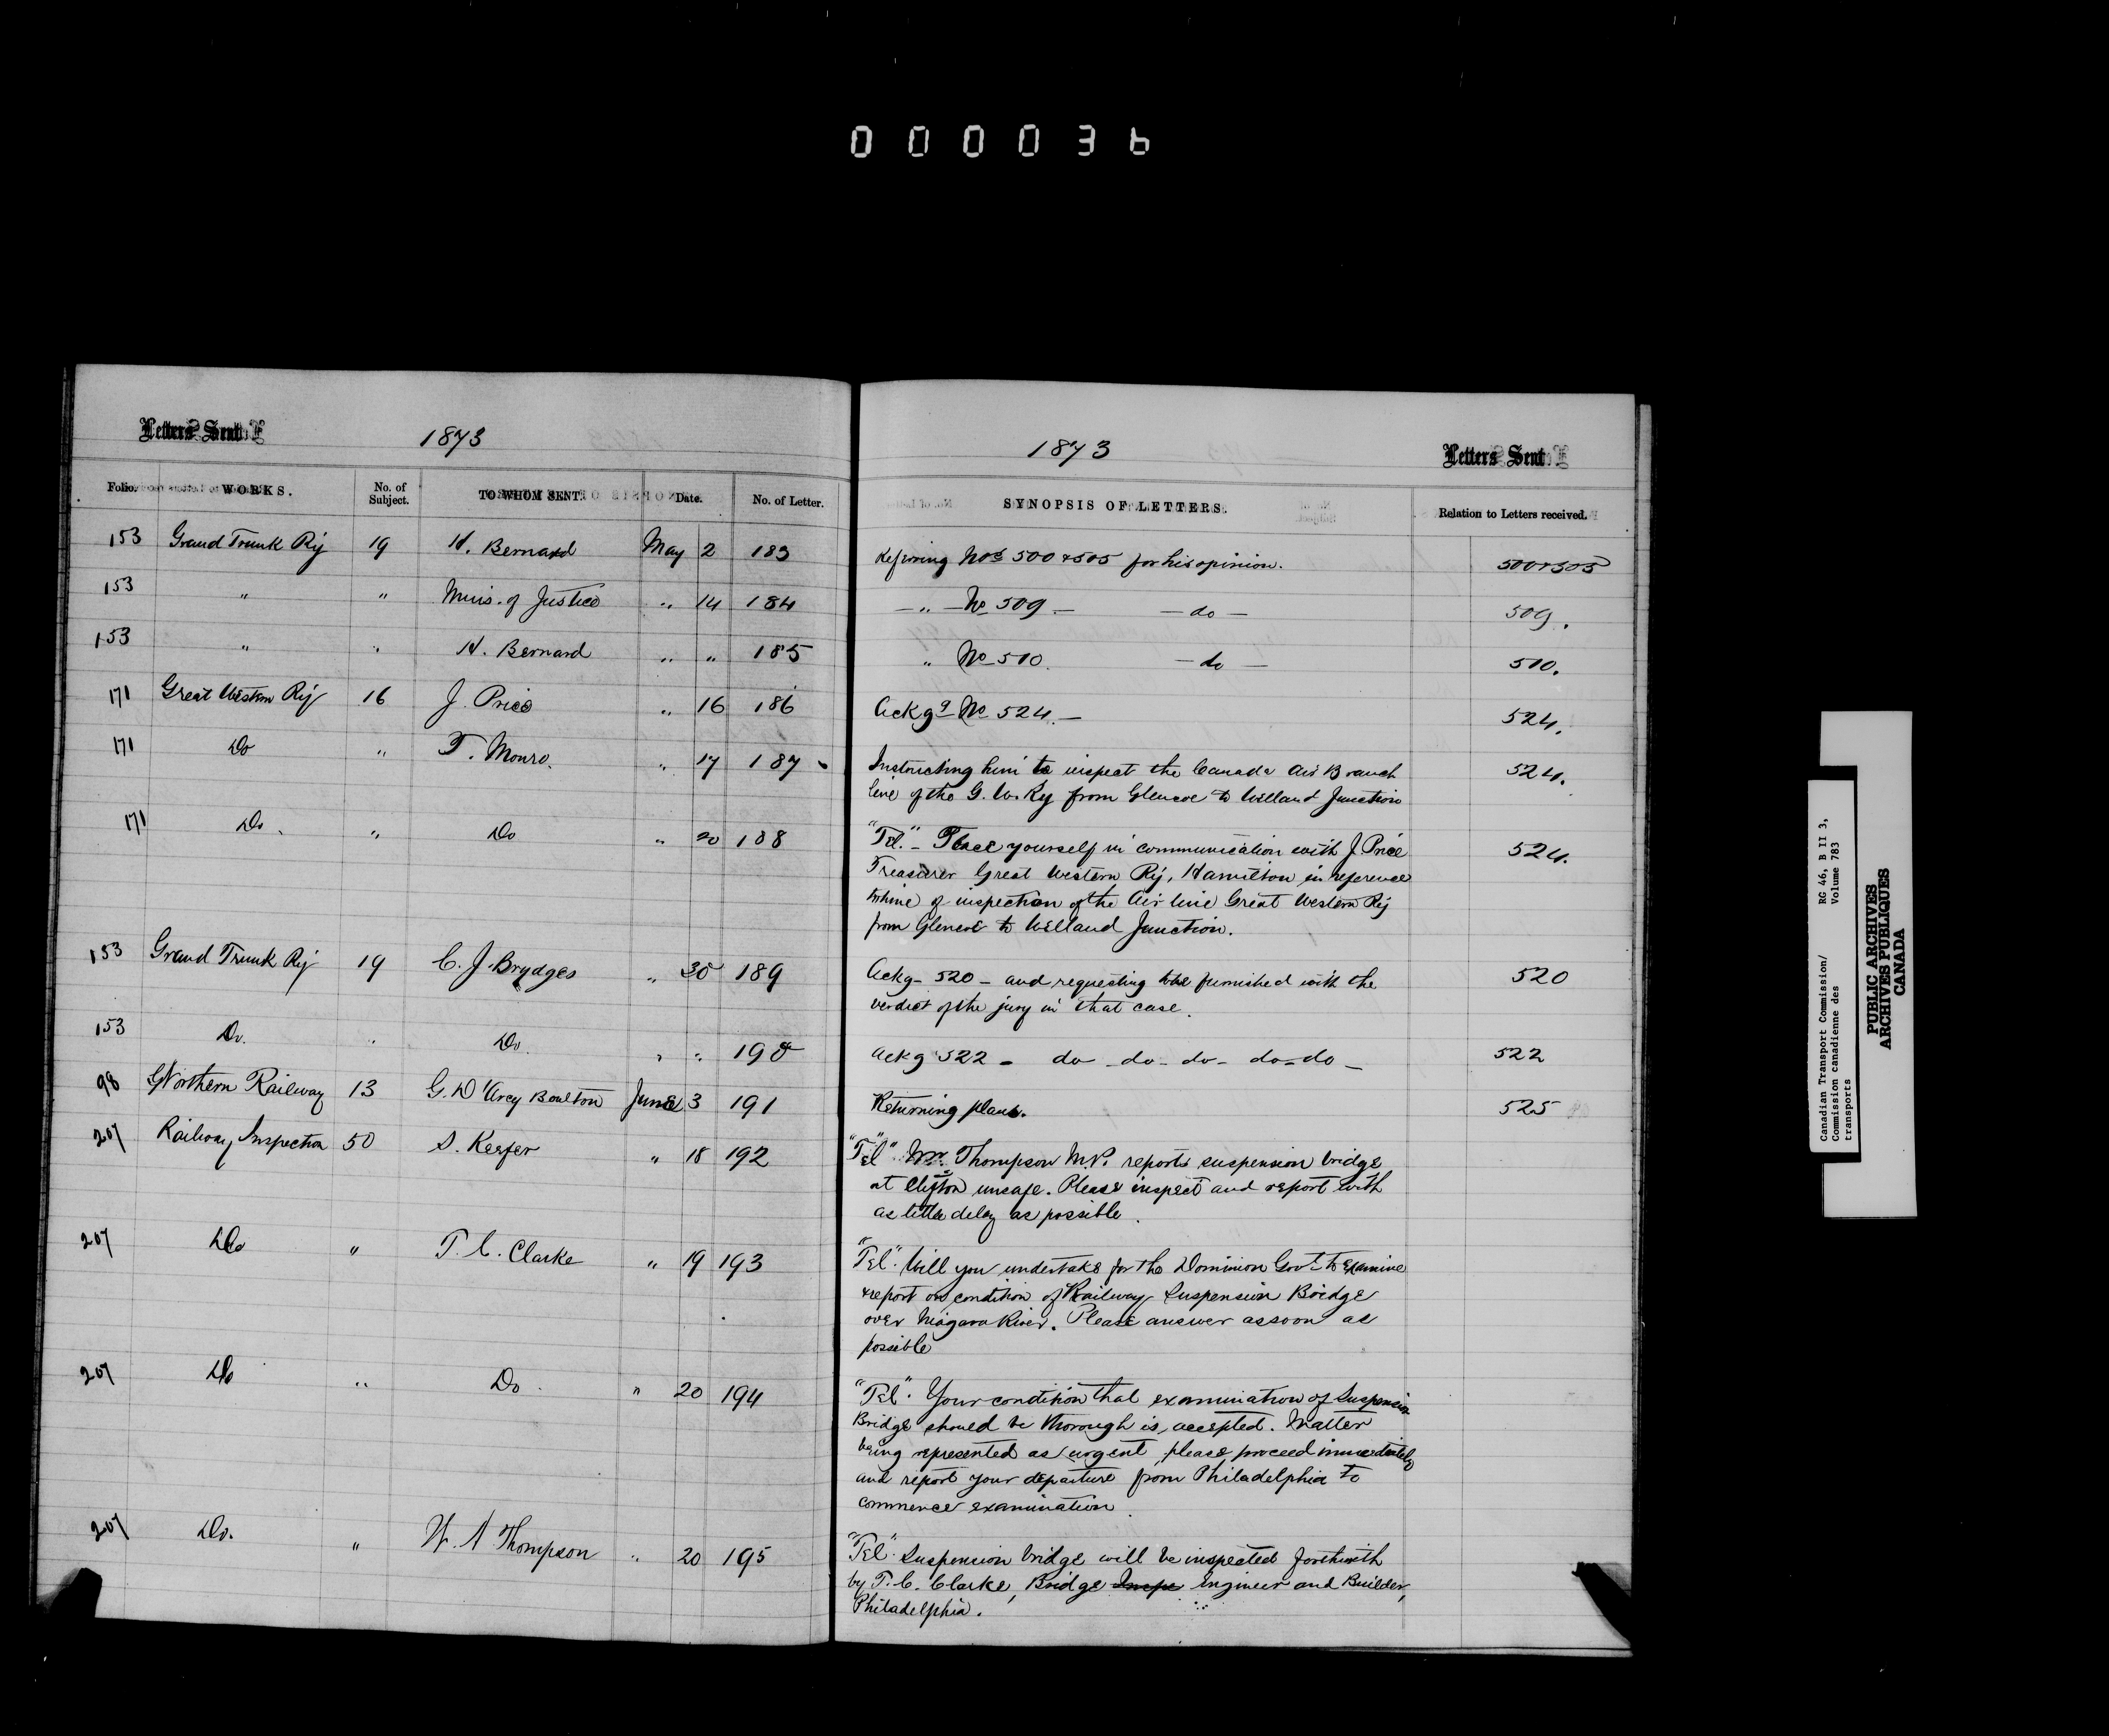 000036
Letters Sent
1873
Folio. WORKS. No. of Subject. TO WHOM SENT. Date. No. of Letter.
153 Grand Trunk Ry 19 H. Bernard May 2 183
153 " " Minis. of Justice " 14 184
153 " " H. Bernard " " 185
171 Great Western Ry 16 J. Price " 16 186
171 Do " T. Monro. " 17 187
171 Do. " Do " 20 188
153 Grand Trunk Ry 19 C. J. Brydges " 30 189
153 Do. " Do. " " 190
98 Northern Railway 13 G. D'Arcy Boulton June 3 191
207 Railway Inspection 50 S. Keefer " 18 192
207 Do " T. C. Clarke " 19 193
207 Do " Do. " 20 194
207 Do. " W. A. Thompson " 20 195
1873
Letters Sent
SYNOPSIS OF LETTERS. Relation to Letters received.
Refering Nos 500 & 505 for his opinion. 500 & 505
— " — No 509 — — do — 509.
" No 510. — do — 510.
Ackgg No 524. — 524.
Instructing him to inspect the Canada Air Branch 524.
line of the G. W. Ry from Glencoe to Welland Junction
"Tel." — Place yourself in communication with J Price 524.
Treasurer Great Western Ry, Hamilton in reference
to time of inspection of the Air line Great Western Ry
from Glencoe to Welland Junction.
Ackg — 520 — and requesting to be furnished with the 520
verdict of the jury in that case.
Ackg 522 — do — do — do — do — do — 522
Returning plans. 525
"Tel" Mr. Thompson M.P. reports suspension bridge
at Clifton unsafe. Please inspect and report with
as little delay as possible.
"Tel". Will you undertake for the Dominion Govt to examine
& report on condition of Railway Suspension Bridge
over Niagara River. Please answer as soon as
possible
"Tel". Your condition that examination of Suspension
Bridge should be thorough is accepted. Matter
being represented as urgent, please proceed immediately
and report your departure from Philadelphia to
commence examination.
"Tel". Suspension bridge will be inspected forthwith
by T. C. Clarke, Bridge Inspe Engineer and Builder,
Philadelphia.
Canadian Transport Commission/ RG 46, B II 3,
Commission canadienne des Volume 783
transports
PUBLIC ARCHIVES
ARCHIVES PUBLIQUES
CANADA